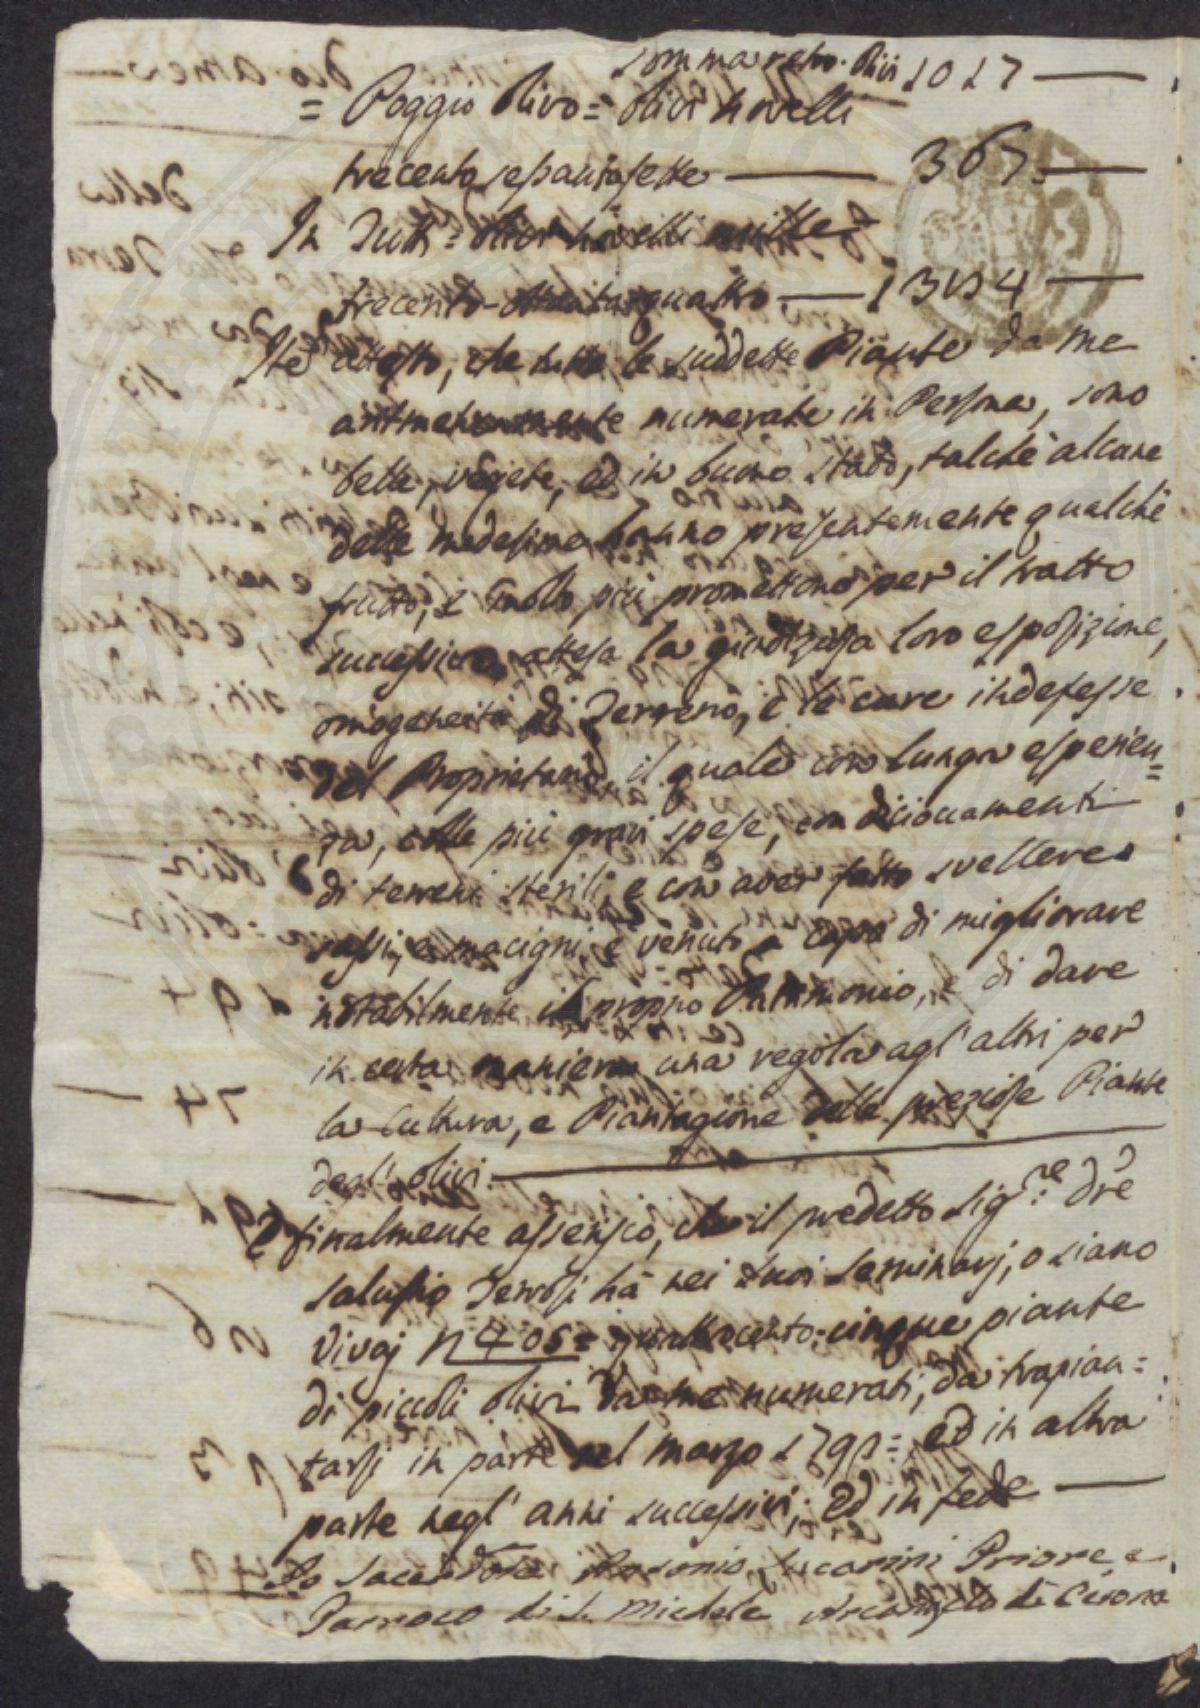 Somma retro. Olivi 1017
= Poggio Olivo = Olivi novelli
trecento sessantasette 367.
In Tutti = Olivi novelli mille
trecento-ottantaquattro 1384
Ite attesto, che tutte le suddette Piante da me
aritmeticamente numerate in Persona, sono
belle, vegete, ed in buono stato, talchè alcune
delle medesime hanno presentemente qualche
frutto, e molto più promettono per il tratto
successivo attesa la giudiziosa loro esposizione,
omogeneità di Terreno, e le cure indefesse
del Proprietario, il quale con lunga esperien=
za, colle più gravi spese, con dicioccamenti
di terreni sterili, e con aver fatto svellere
sassi, e macigni, è venuto a capo di migliorare
notabilmente il proprio Patrimonio, e di dare
in certa maniera una regola agl' altri per
la Cultura, e Piantagione delle preziose Piante
degl' olivi.
E finalmente asserisco, che il predetto Sig.re Dre
Salustio Terrosi hà nei suoi seminarj, o siano
Vivaj N 405 = quattrocento-cinque piante
di piccoli olivi da me numerati, da trapian=
tarsi in parte nel marzo 1798 = ed in altra
parte negl' anni successivi; ed in fede
Io Sacerdote Antonio Priore, e
Parroco di S. Michele Arcangelo di